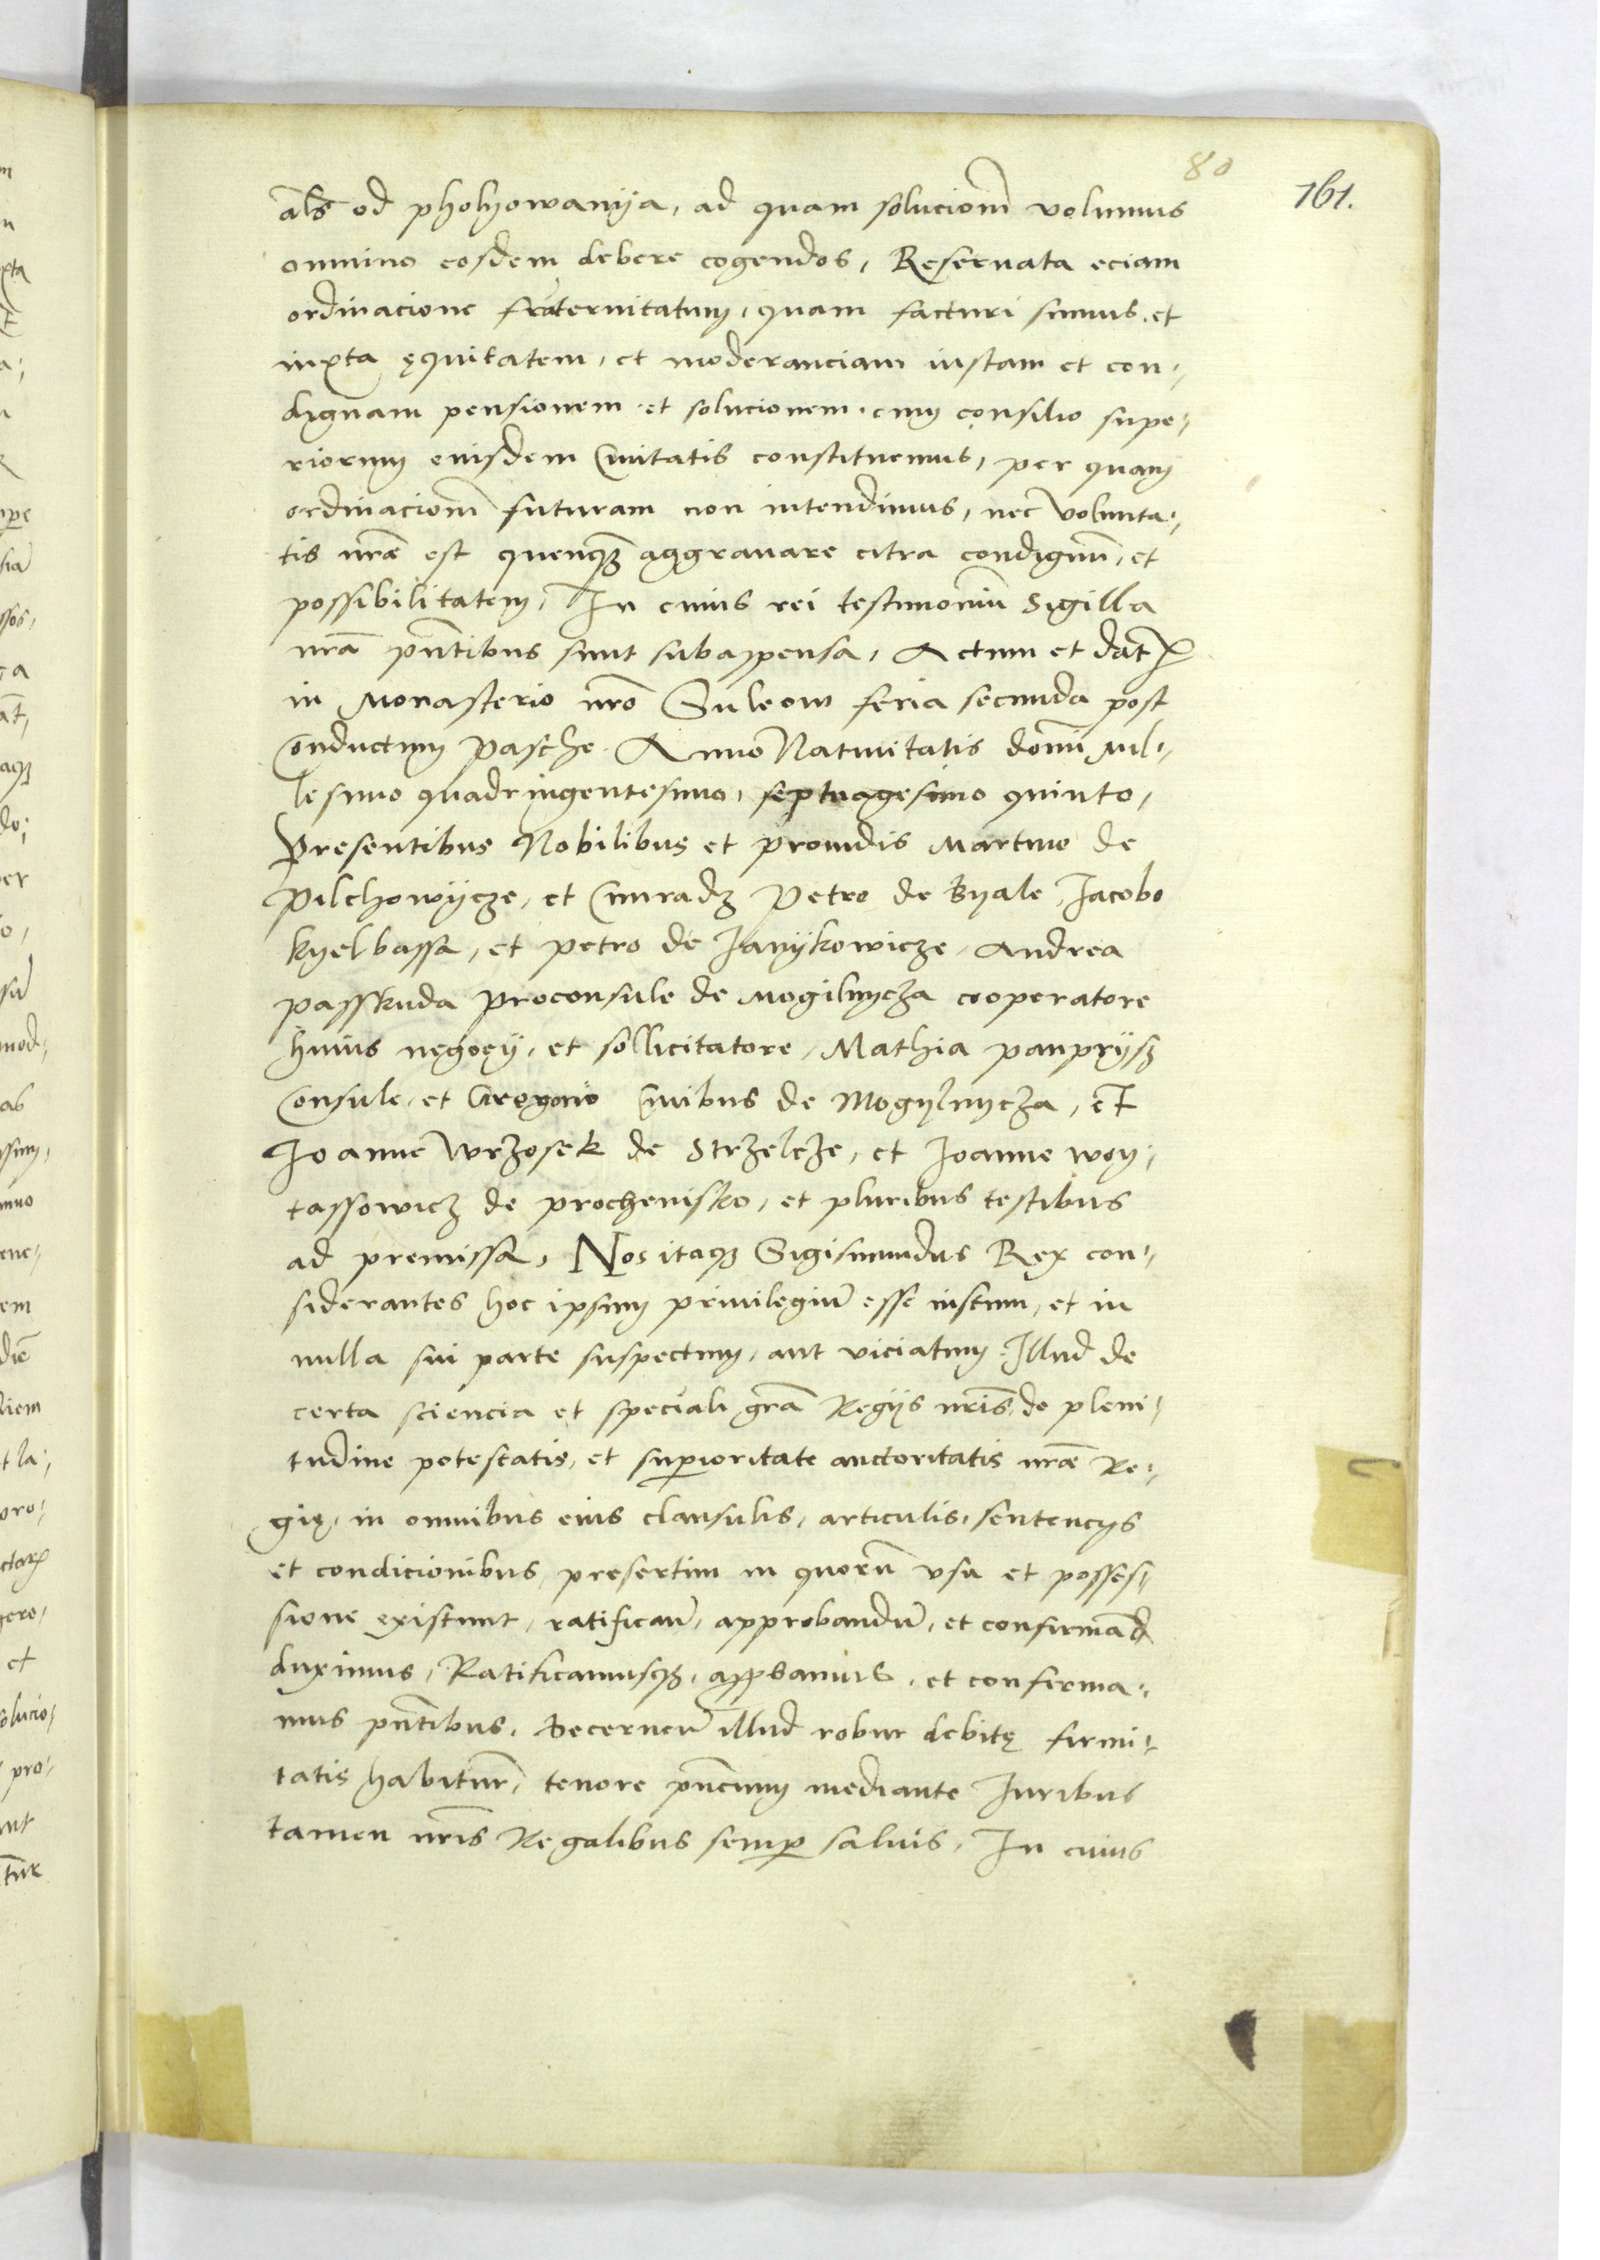 80
161.
als od pholyowanÿa, ad quam solucionē volumus
omnino eosdem debere cogendos, Reseruata eciam
ordinacione fraternitatum, quam facturi sumus, et
iuxta ęquitatem, et moderanciam iustam et con-
dignam pensionem et solucionem, cum consilio supe-
riorum eiusdem Ciuitatis constituemus, per quam
ordinacionē futuram non intendimus, nec volunta-
tis nrae est quenq3 aggrauare citra condignū, et
possibilitatem, In cuius rei testimoniū Sigilla
nrā pntibus sunt subappensa, Actum et dat
in Monasterio nrō Suleow feria secunda post
Conductum Pasche Anno Natiuitatis domī Mil-
lesimo quadringentesimo, septuagesimo quinto,
Presentibus Nobilibus et prouidis Martino de
Pilchowÿcze, et Cunrad3 Petro de Byale, Jacobo
kyelbassa, et Petro de Janÿkowicze, Andrea
passkuda Proconsule de Mogilnycza cooperatore
huius negocÿ, et sollicitatore, Mathia panprÿs3
Consule, et Gregorio Ciuibus de Mogÿlnycza, et
Joanne Wrzosek de Strzelcze, et Joanne woy-
tassowicz de prochenisko, et pluribus testibus
ad premissa, Nos itaq3 Sigismundus Rex con-
siderantes hoc ipsum priuilegiū esse iustum, et in
nulla sui parte suspectum, aut viciatum, Illud de
certa sciencia et speciali grā Regijs nris, de pleni-
tudine potestatis, et superioritate auctoritatis nrae Re-
gię, in omnibus eius clausulis, articulis, sentencÿs
et condicionibus presertim in quorū vsu et posses-
sione existunt, ratificanū, approbandū, et confirmand
duximus, Ratificamusq3, appbamus, et confirma-
mus pntibus, Decernen illud robur debitę firmi-
tatis habiturū, tenore pnciuum mediante Iuribus
tamen nris Regalibus semp saluis, In cuius